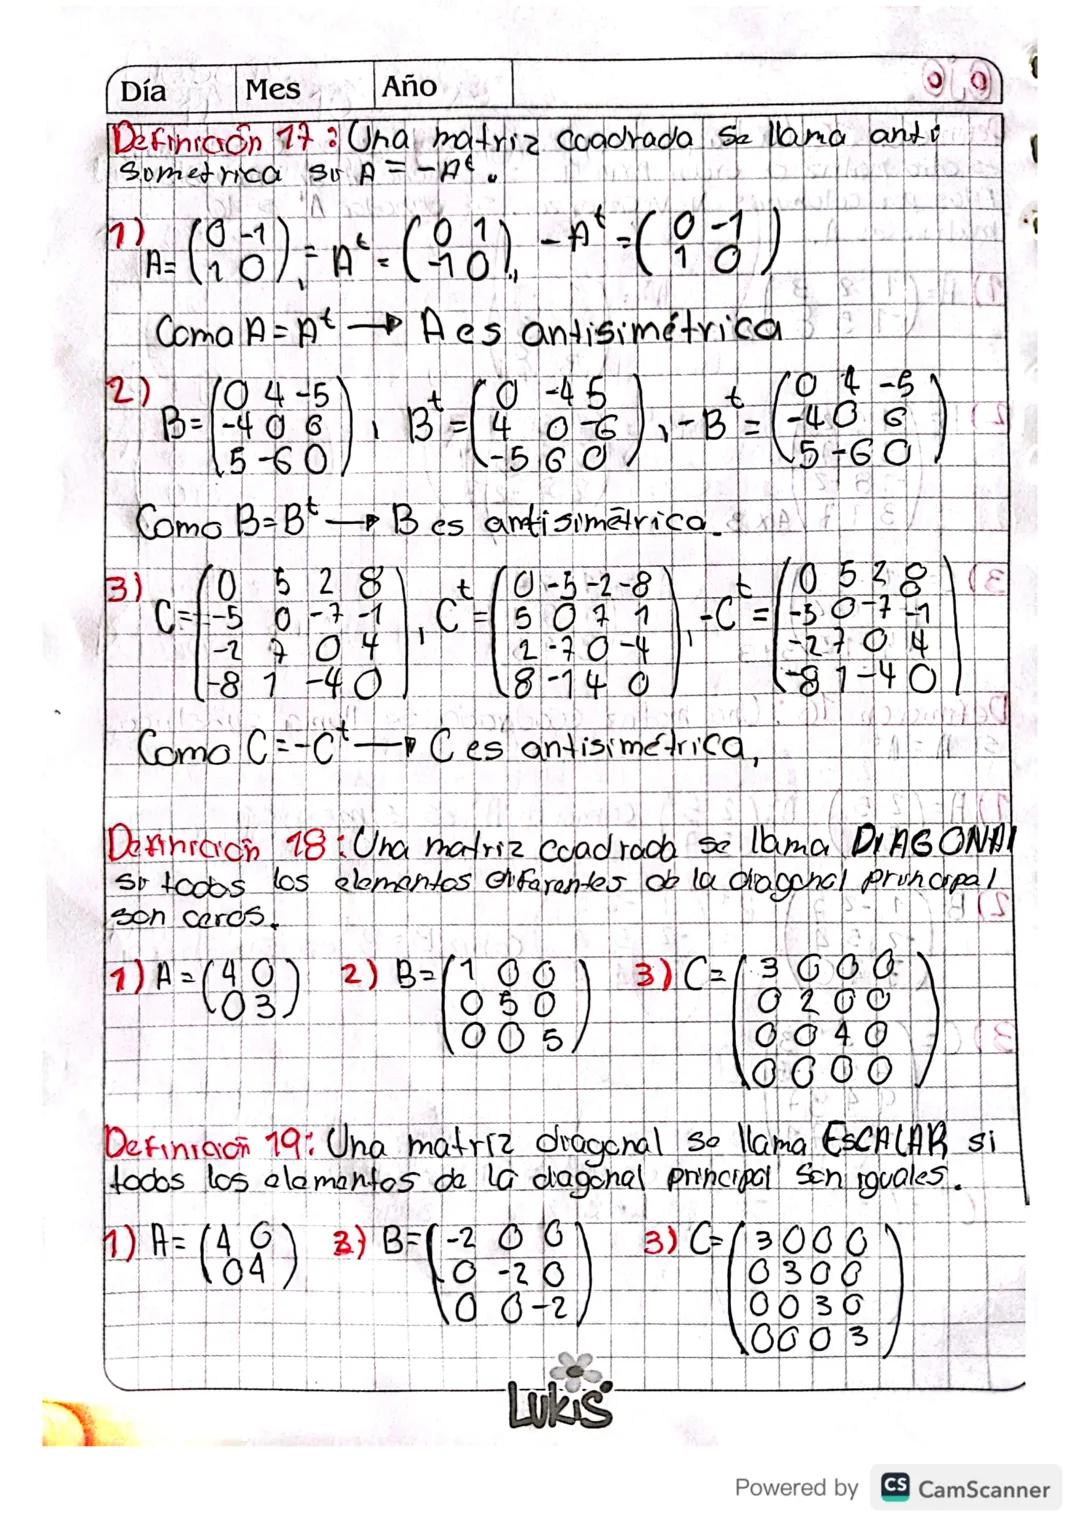 Día Mes Año
Definición 17: Una matriz cuadrada se llama anti
simetrica si A = -Aᵗ.
1) A = (0 -1; 1 0), = Aᵗ = (0 1; -1 0), -Aᵗ = (0 -1; 1 0)
Como A = Aᵗ → A es antisimétrica
2) B = (0 4 -5; -4 0 6; 5 -6 0), Bᵗ = (0 -4 5; 4 0 -6; -5 6 0), -Bᵗ = (0 4 -5; -4 0 6; 5 -6 0)
Como B = Bᵗ → B es antisimétrica.
3) C = (0 5 2 8; -5 0 -7 -1; -2 7 0 4; -8 1 -4 0), Cᵗ = (0 -5 -2 -8; 5 0 7 1; 2 -7 0 -4; 8 -1 4 0), -Cᵗ = (0 5 2 8; -5 0 -7 -1; -2 7 0 4; -8 1 -4 0)
Como C = -Cᵗ → C es antisimétrica,
Definición 18: Una matriz cuadrada se llama DIAGONAL
si todos los elementos diferentes de la diagonal principal
son ceros.
1) A = (4 0; 0 3) 2) B = (1 0 0; 0 5 0; 0 0 5) 3) C = (3 0 0 0; 0 2 0 0; 0 0 4 0; 0 0 0 0)
Definición 19: Una matriz diagonal se llama ESCALAR si
todos los elementos de la diagonal principal son iguales.
1) A = (4 0; 0 4) 2) B = (-2 0 0; 0 -2 0; 0 0 -2) 3) C = (3 0 0 0; 0 3 0 0; 0 0 3 0; 0 0 0 3)
Lukis
Powered by CS CamScanner